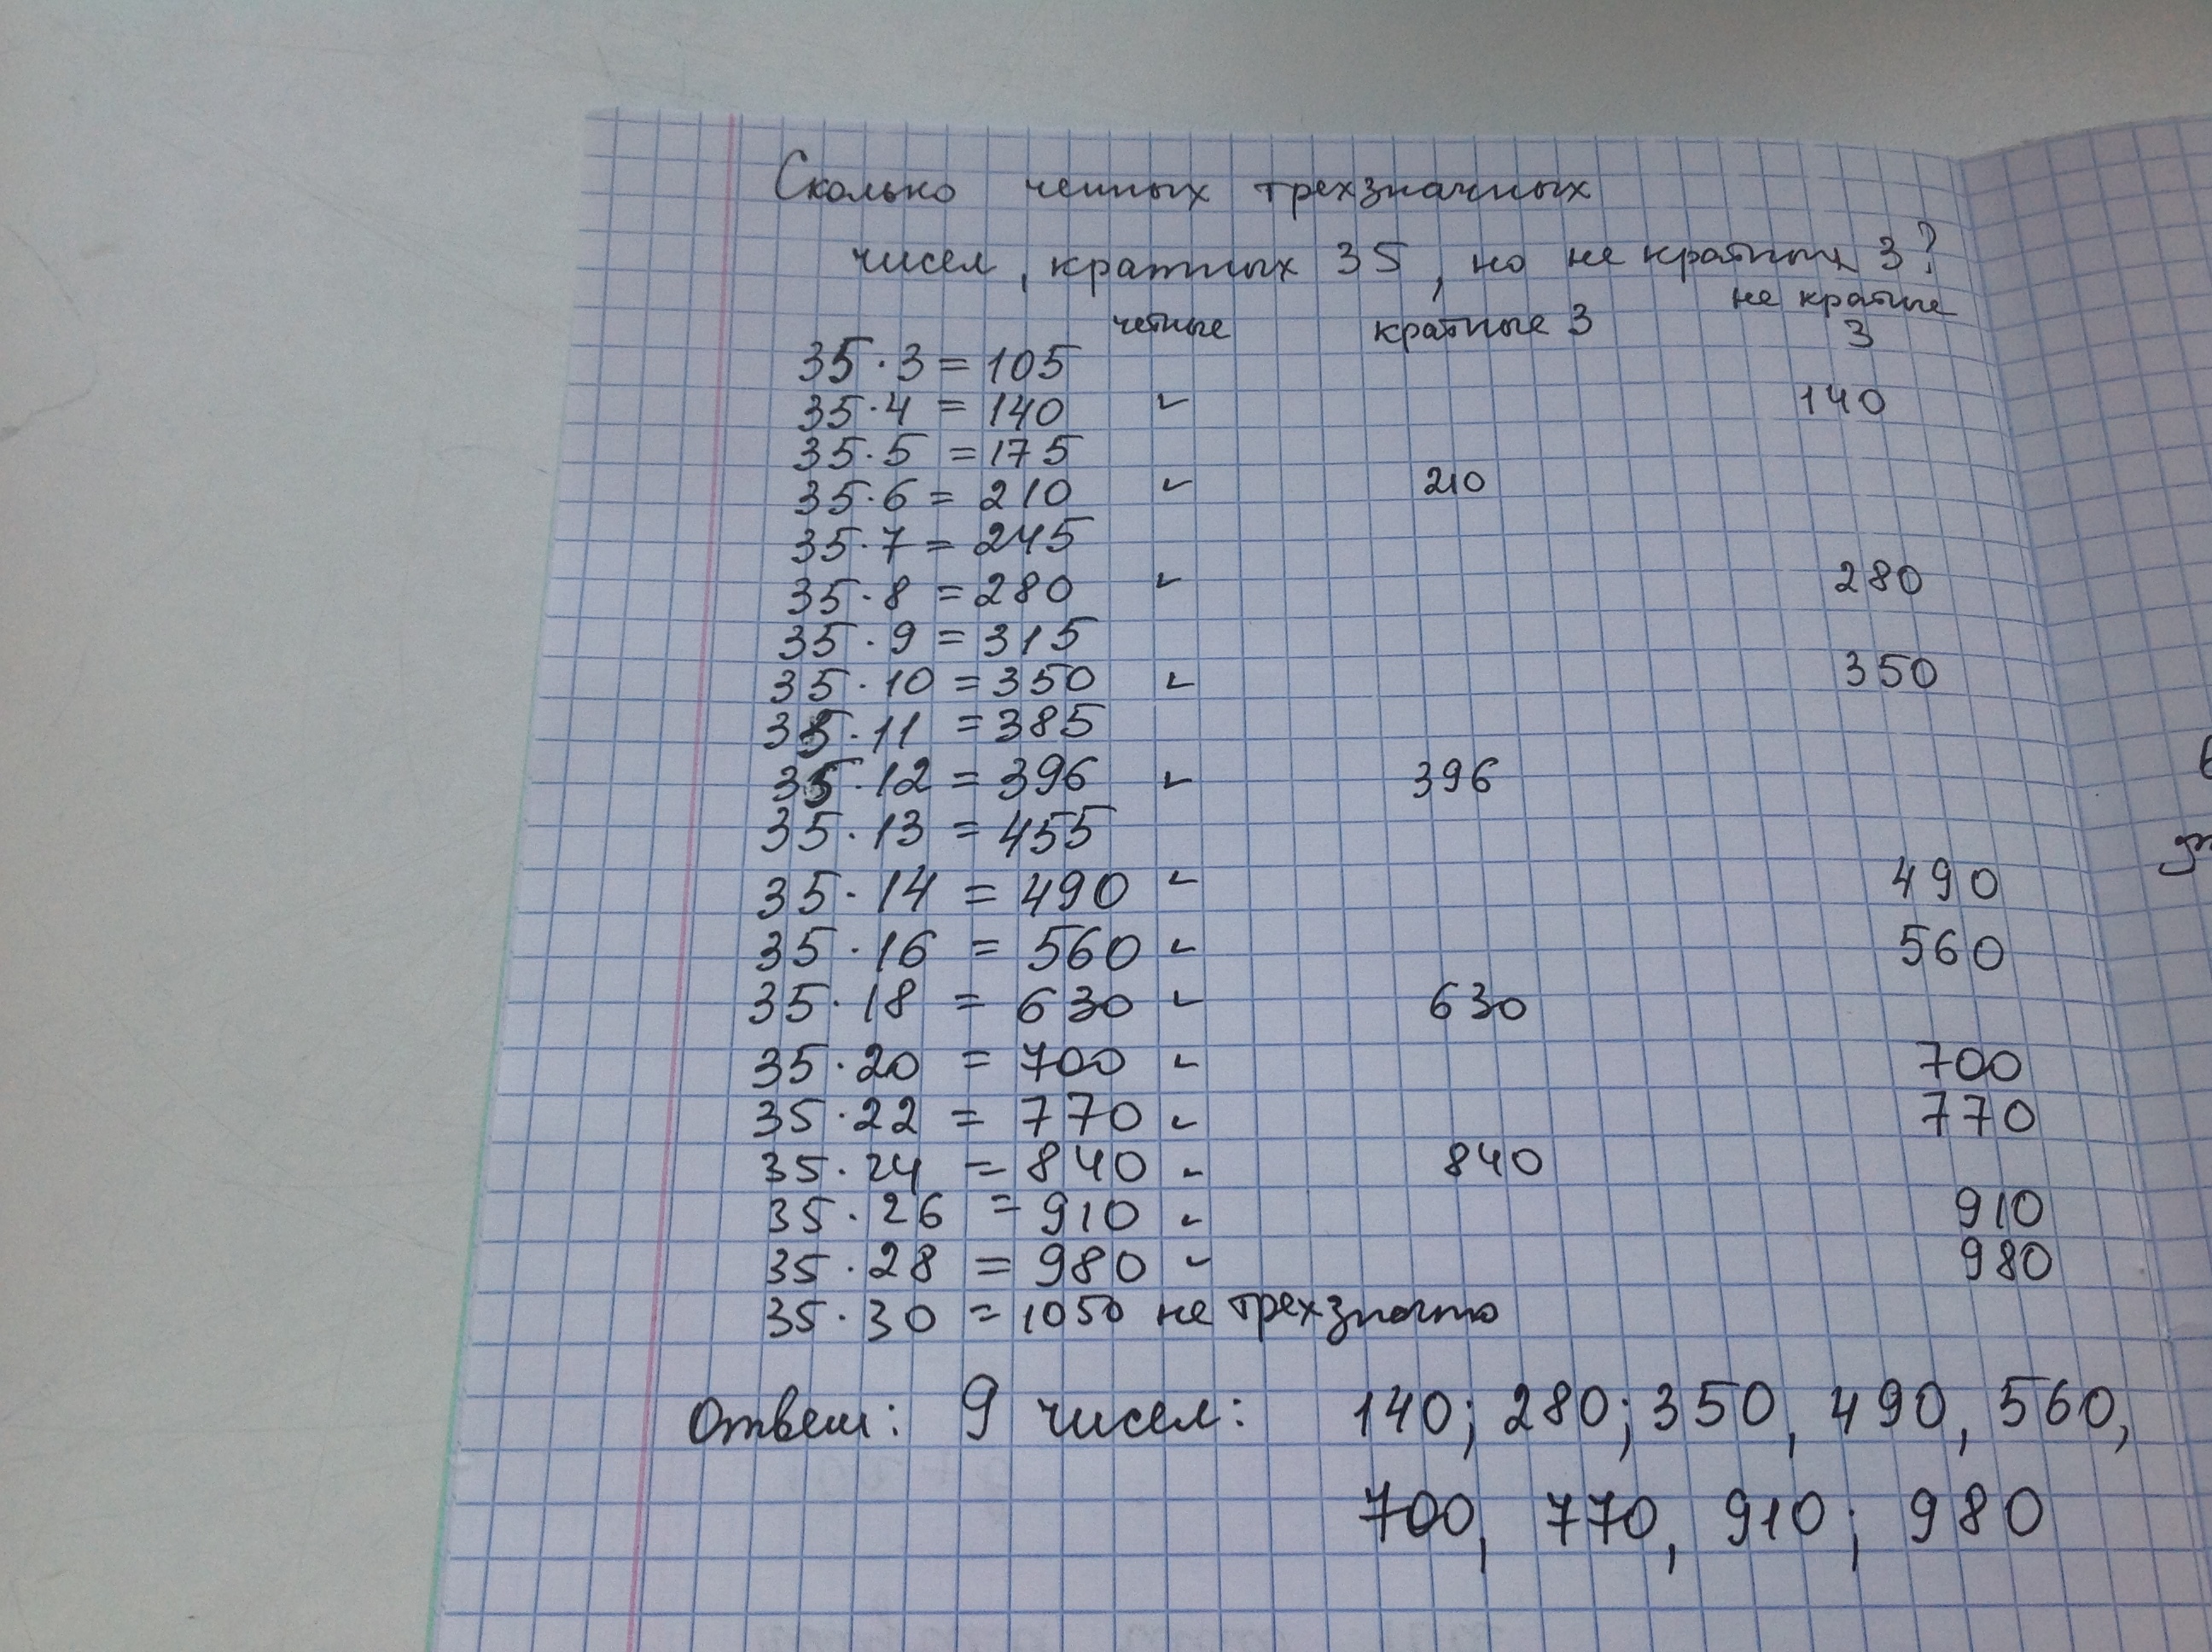 Сколько четных трехзначных
чисел, кратных 35, но не кратных 3?
четные кратные 3 не кратные 3
35·3=105
35·4=140 ✓ 140
35·5=175
35·6=210 ✓ 210
35·7=245
35·8=280 ✓ 280
35·9=315
35·10=350 ✓ 350
35·11=385
35·12=396 ✓ 396
35·13=455
35·14=490 ✓ 490
35·16=560 ✓ 560
35·18=630 ✓ 630
35·20=700 ✓ 700
35·22=770 ✓ 770
35·24=840 ✓ 840
35·26=910 ✓ 910
35·28=980 ✓ 980
35·30=1050 не трехзначно
Ответ: 9 чисел: 140; 280; 350, 490, 560,
700, 770, 910; 980